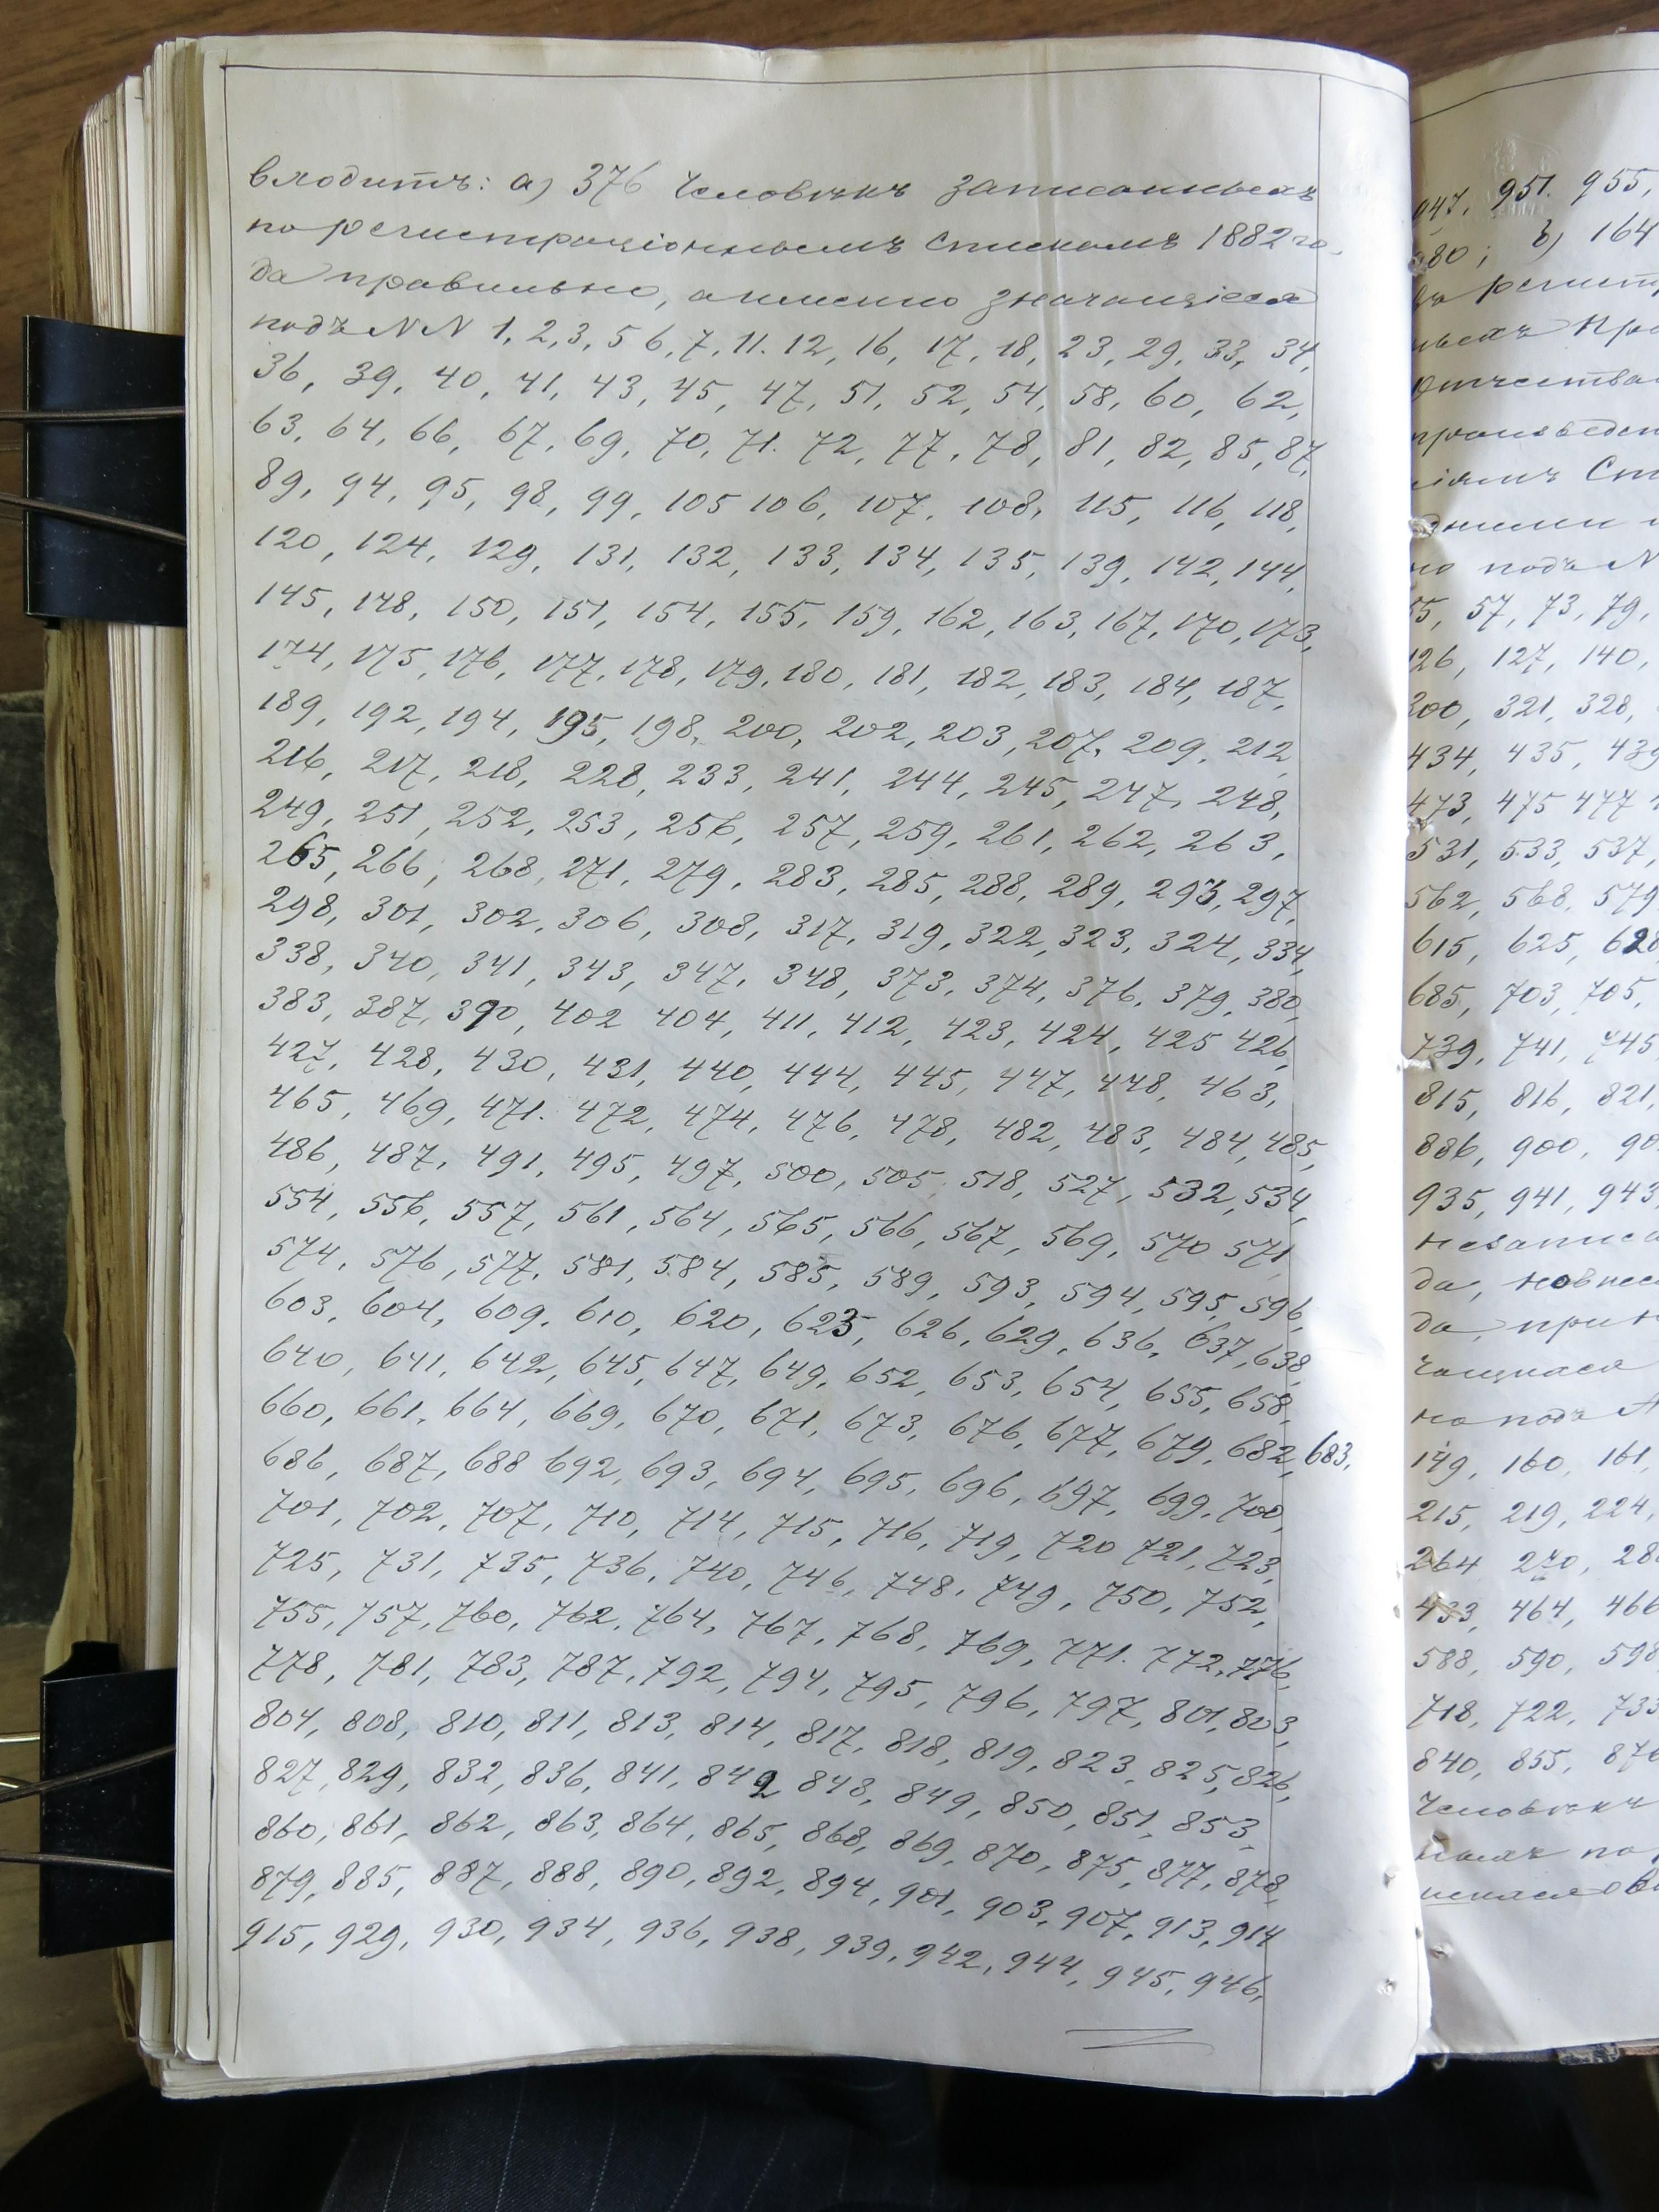 входитъ: а) 376 человѣкъ записанныхъ
по регистраціоннымъ спискамъ 1882 го-
да правильно, а именно значащіеся
подъ NN 1, 2, 3, 5 6, 7, 11. 12, 16, 17, 18, 23, 29, 33, 34,
36, 39, 40, 41, 43, 45, 47, 51, 52, 54, 58, 60, 62,
63, 64, 66, 67, 69, 70, 71. 72, 77, 78, 81, 82, 85, 87,
89, 94, 95, 98, 99, 105 106, 107, 108, 115, 116, 118,
120, 124, 129, 131, 132, 133, 134, 135, 139, 142, 144,
145, 148, 150, 151, 154, 155, 159, 162, 163, 167, 170, 173,
174, 175, 176, 177, 178, 179, 180, 181, 182, 183, 184, 187,
189, 192, 194, 195, 198, 200, 202, 203, 207, 209, 212,
216, 217, 218, 228, 233, 241, 244, 245, 247, 248,
249, 251, 252, 253, 256, 257, 259, 261, 262, 263,
265, 266, 268, 271, 279, 283, 285, 288, 289, 293, 297,
298, 301, 302, 306, 308, 317, 319, 322, 323, 324, 334,
338, 340, 341, 343, 347, 348, 373, 374, 376, 379, 380,
383, 387, 390, 402 404, 411, 412, 423, 424, 425 426,
427, 428, 430, 431, 440, 444, 445, 447, 448, 463,
465, 469, 471. 472, 474, 476, 478, 482, 483, 484, 485,
486, 487, 491, 495, 497, 500, 505, 518, 527, 532, 534,
554, 556, 557, 561, 564, 565, 566, 567, 569, 570 571,
574, 576, 577, 581, 584, 585, 589, 593, 594, 595, 596,
603, 604, 609, 610, 620, 623, 626, 629, 636, 637, 638,
640, 641, 642, 645, 647, 649, 652, 653, 654, 655, 658,
660, 661, 664, 669, 670, 671, 673, 676, 677, 679, 682, 683,
686, 687, 688 692, 693, 694, 695, 696, 697, 699, 700,
701, 702, 707, 710, 714, 715, 716, 719, 720 721, 723,
725, 731, 735, 736, 740, 746, 748, 749, 750, 752,
755, 757, 760, 762, 764, 767, 768, 769, 771. 772, 776,
778, 781, 783, 787, 792, 794, 795, 796, 797, 801, 803,
804, 808, 810, 811, 813, 814, 817, 818, 819, 823, 825, 826,
827, 829, 832, 836, 841, 842 848, 849, 850, 851, 853,
860, 861, 862, 863, 864, 865, 868, 869, 870, 875, 877, 878,
879, 885, 887, 888, 890, 892, 894, 901, 903, 907, 913, 914
915, 929, 930, 934, 936, 938, 939, 942, 944, 945, 946,
947, 951. 955,
980; в) 164
434, 435, 439
473, 475 477
531, 533, 537,
562, 568, 579
615, 625, 628
685, 703, 705,
739, 741, 745
815, 816, 821,
886, 900,
935, 941, 943
149, 160, 161,
215, 219, 224,
264 270,
433, 464, 466
588, 590, 598
718, 722, 733
840, 855,